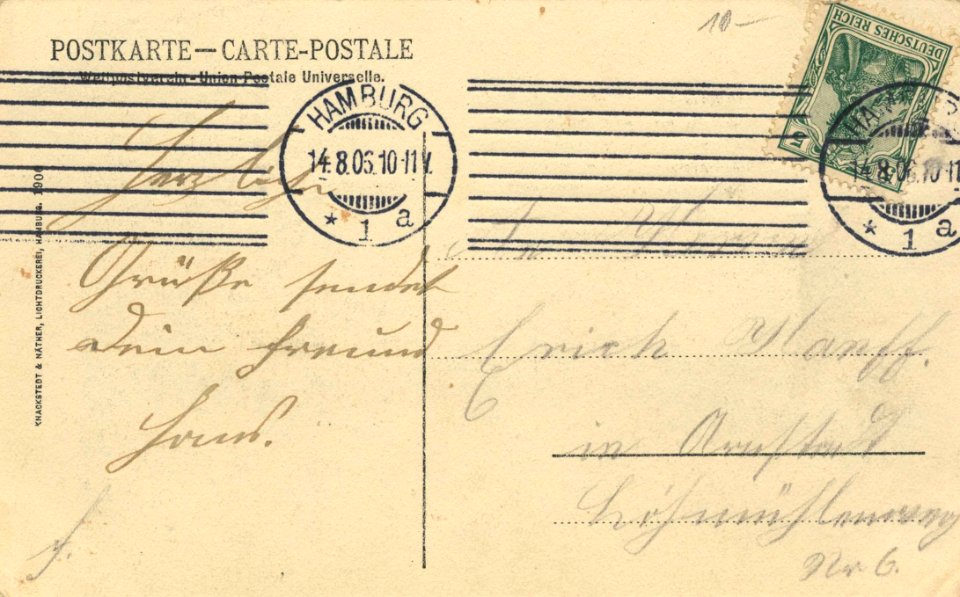 10-
POSTKARTE — CARTE-POSTALE
Weltpostverein - Union Postale Universelle.
DEUTSCHES REICH
5
HAMBURG
14.8.06.10-11V.
* 1 a
HAMBURG
14.8.06.10-11
* 1 a
KNACKSTEDT & NÄTHER, LICHTDRUCKEREI, HAMBURG.
Herzliche
Grüße sendet
Dein Freund
Hans.
An
Erich Hanff.
in Arnstadt
Nr 6.